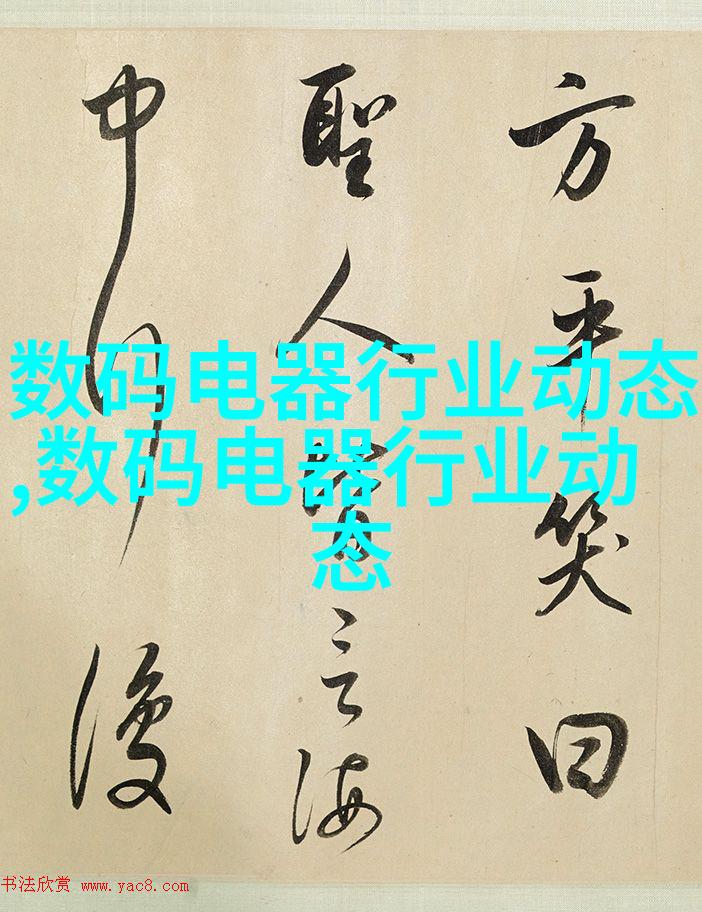 方平笑曰
聖人皆言海
中行復
数码电器行业动态
,数码电器行业动
态
书法欣赏 www.yac8.com